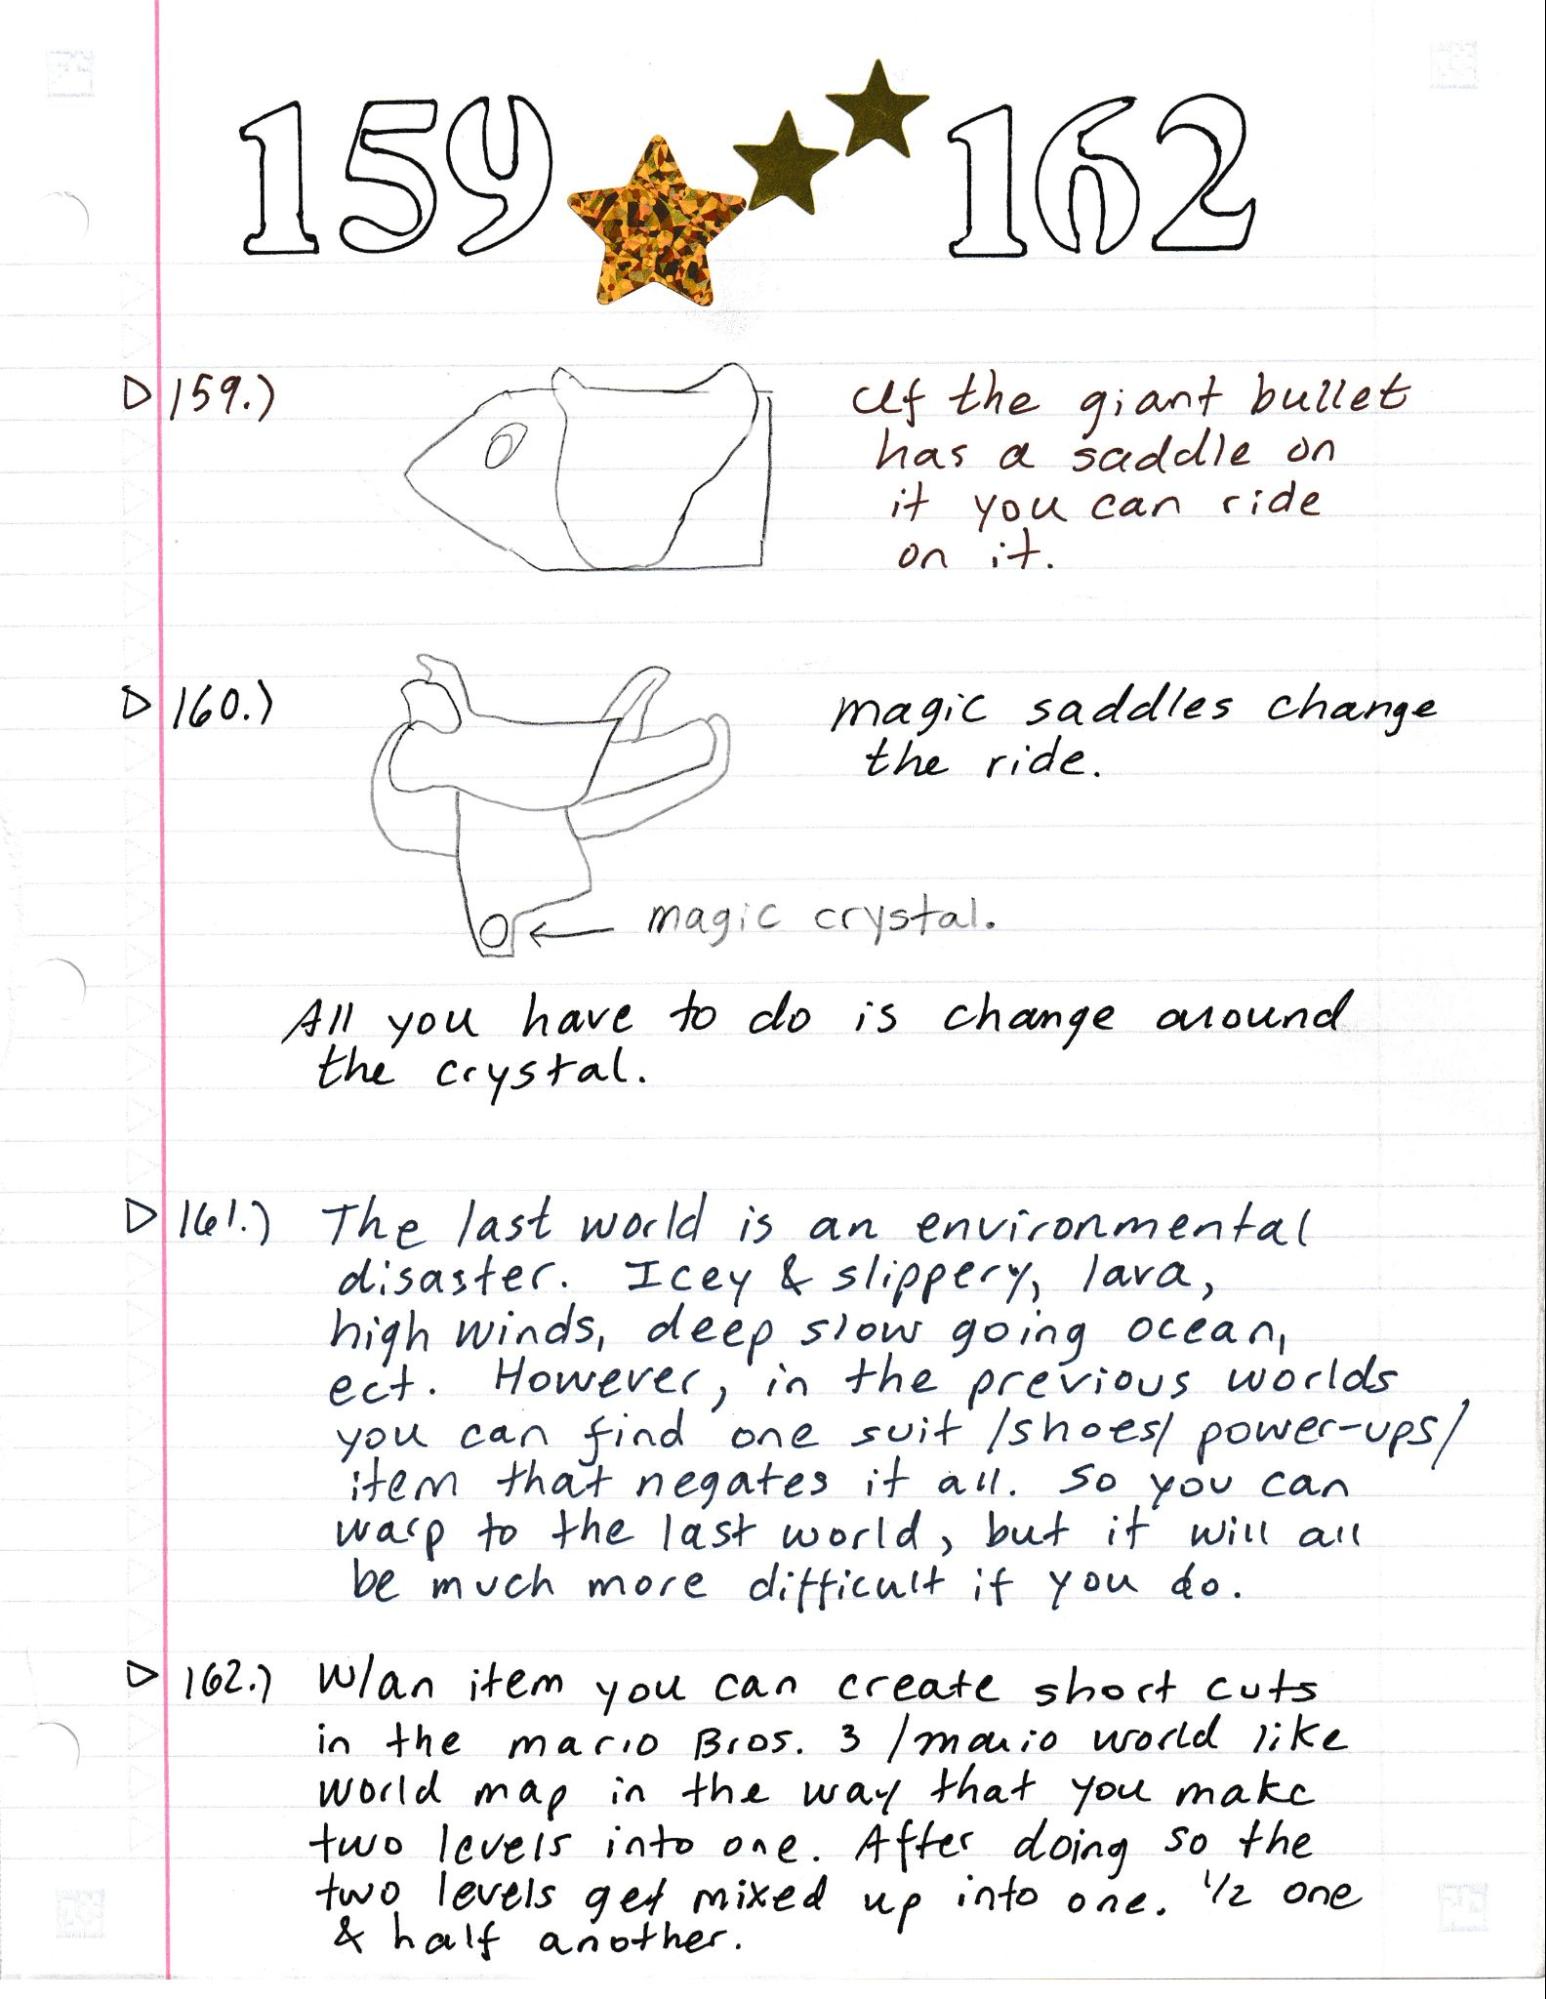 159 162
159.) If the giant bullet
has a saddle on
it you can ride
on it.
160.) magic saddles change
the ride.
magic crystal.
All you have to do is change around
the crystal.
161.) The last world is an environmental
disaster. Icey & slippery, lava,
high winds, deep slow going ocean,
ect. However, in the previous worlds
you can find one suit /shoes/ power-ups/
item that negates it all. So you can
warp to the last world, but it will all
be much more difficult if you do.
162.) W/an item you can create short cuts
in the mario Bros. 3 /mario world like
world map in the way that you make
two levels into one. After doing so the
two levels get mixed up into one. 1/2 one
& half another.